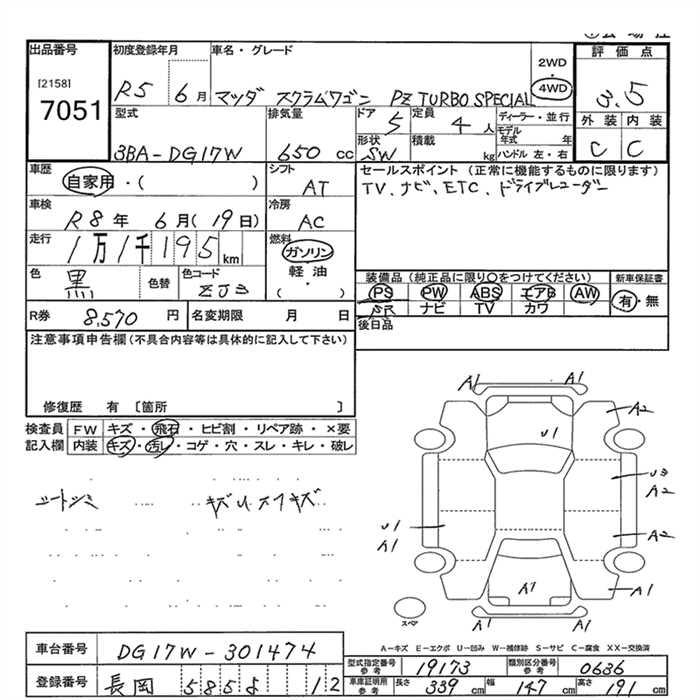 出品番号 初度登録年月 車名・グレード 2WD 評価点
[2158] 4WD
7051 R5 6月 マツダ スクラムワゴン PZ TURBO SPECIAL 3.5
型式 排気量 ドア 定員 ディーラー・並行 外装 内装
5 4人 モデル年式 年
3BA-DG17W 650cc 形状 積載 C C
SW kg ハンドル 左・右
車歴 自家用・( ) シフト AT セールスポイント (正常に機能するものに限ります)
TV、ナビ、ETC、ドライブレコーダー
車検 R8年 6月(19日) 冷房 AC
走行 1万1千195km 燃料 ガソリン
軽油
( )
色 黒 色替 色コード ZJ3
装備品 (純正品に限り○をつけてください) 新車保証書
PS PW ABS エアB AW 有・無
SR ナビ TV カワ
R券 8,570円 名変期限 月 日 後日品
注意事項申告欄(不具合内容等は具体的に記入して下さい)
修復歴 有 〔箇所 〕
検査員 FW キズ・飛石・ヒビ割・リペア跡・×要
記入欄 内装 キズ・汚レ・コゲ・穴・スレ・キレ・破レ
シートシミ キズU.スフキズ
A1 A1
A2
U1
U3
A2
U1
A1
A2
A1
A1
A1 A1
スペア
A-キズ E-エクボ U-凹み W-補修跡 S-サビ C-腐食 XX-交換済
車台番号 DG17W-301474
型式指定番号 参考 19173 類別区分番号 参考 0636
登録番号 長岡 585 よ 12
車庫証明用 参考 長さ 339cm 幅 147cm 高さ 191cm